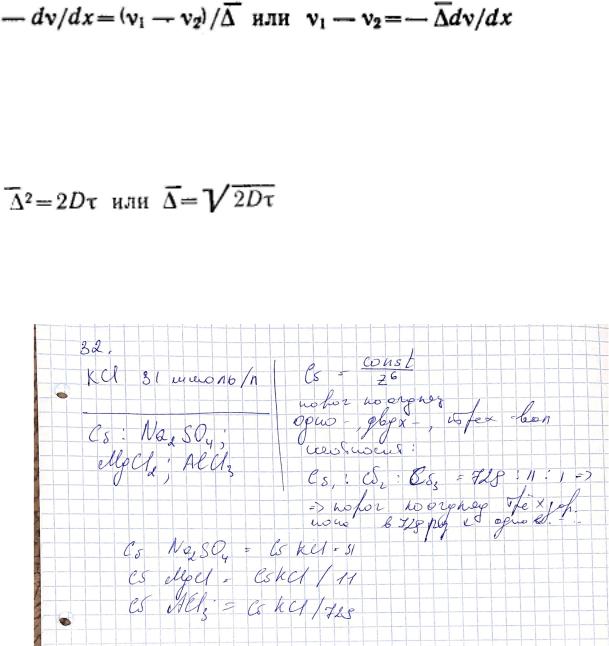 — dν/dx = (ν₁ — ν₂)/Δ̅ или ν₁ — ν₂ = — Δ̅dν/dx
Δ̅² = 2Dτ или Δ̅ = √2Dτ
32.
KCl 31 ммоль/л
Cб : Na₂SO₄;
MgCl₂; AlCl₃
Cб = const / z⁶
порог коагуляц
одно-, двух-, трех-вал
соотносит:
Cб₁ : Cб₂ : Cб₃ = 729 : 11 : 1 =>
=> порог коагуляц трёхзар.
иона в 729 раз < одноз...
Cб Na₂SO₄ = Cб KCl = 31
Cб MgCl = Cб KCl / 11
Cб AlCl₃ = Cб KCl / 729